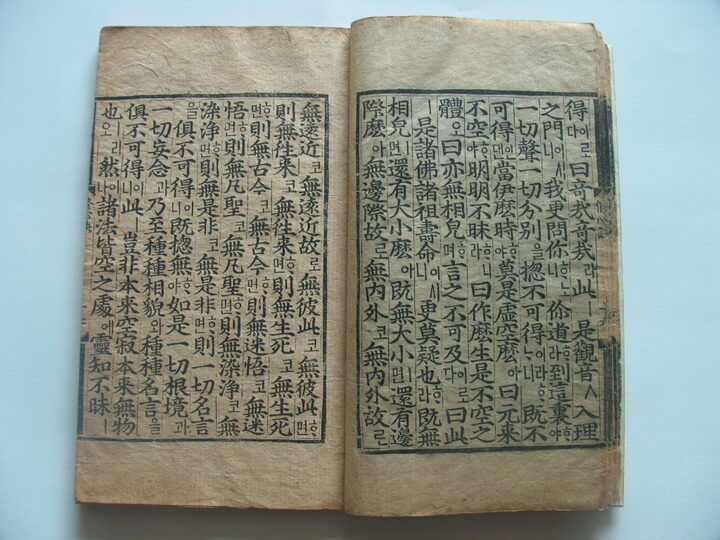 得이로다曰奇哉奇哉라此ㅣ是觀音ㅅ入理
之門이시니我更問你ᄒᆞ노니你道라到這裏ᄒᆞ야
一切聲一切分別을摠不可得이라ᄒᆞ니旣不
可得인댄當伊麽時ᄒᆞ야莫是虛空麽아曰元來
不空ᄒᆞ야明明不昧ᄒᆞ니라曰作麽生是不空之
體오曰亦無相皃ᄒᆞ며言之不可及이로다曰此
ㅣ是諸佛諸祖壽命이시니更莫疑也ᄒᆞ라旣無
相皃ᄒᆞ니還有大小麽아旣無大小ᄒᆞ면還有邊
際麽아無邊際故로無內外코無內外故로
無遠近코無遠近故로無彼此코無彼此ᄒᆞ면
則無往來코無往來ᄒᆞ면則無生死코無生死
ᄒᆞ면則無古今코無古今ᄒᆞ면則無迷悟코無迷
悟ᄒᆞ면則無凡聖코無凡聖ᄒᆞ면則無染淨코無
染淨ᄒᆞ면則無是非코無是非ᄒᆞ면則一切名言
을俱不可得이니旣摠無ᄒᆞ야如是一切根境과
一切妄念과乃至種種相貌와種種名言을
俱不可得이니此ㅣ豈非本來空寂本來無物
也ㅣ리오然이나諸法皆空之處에靈知不昧ㅣ